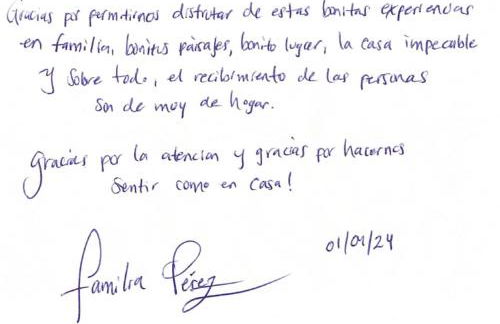 Gracias por permitirnos disfrutar de estas bonitas experiencias
en familia, bonitos paisajes, bonito lugar, la casa impecable
y sobre todo, el recibimiento de las personas
son de muy de hogar.
gracias por la atencion y gracias por hacernos
sentir como en casa!
01/01/24
Familia Pérez